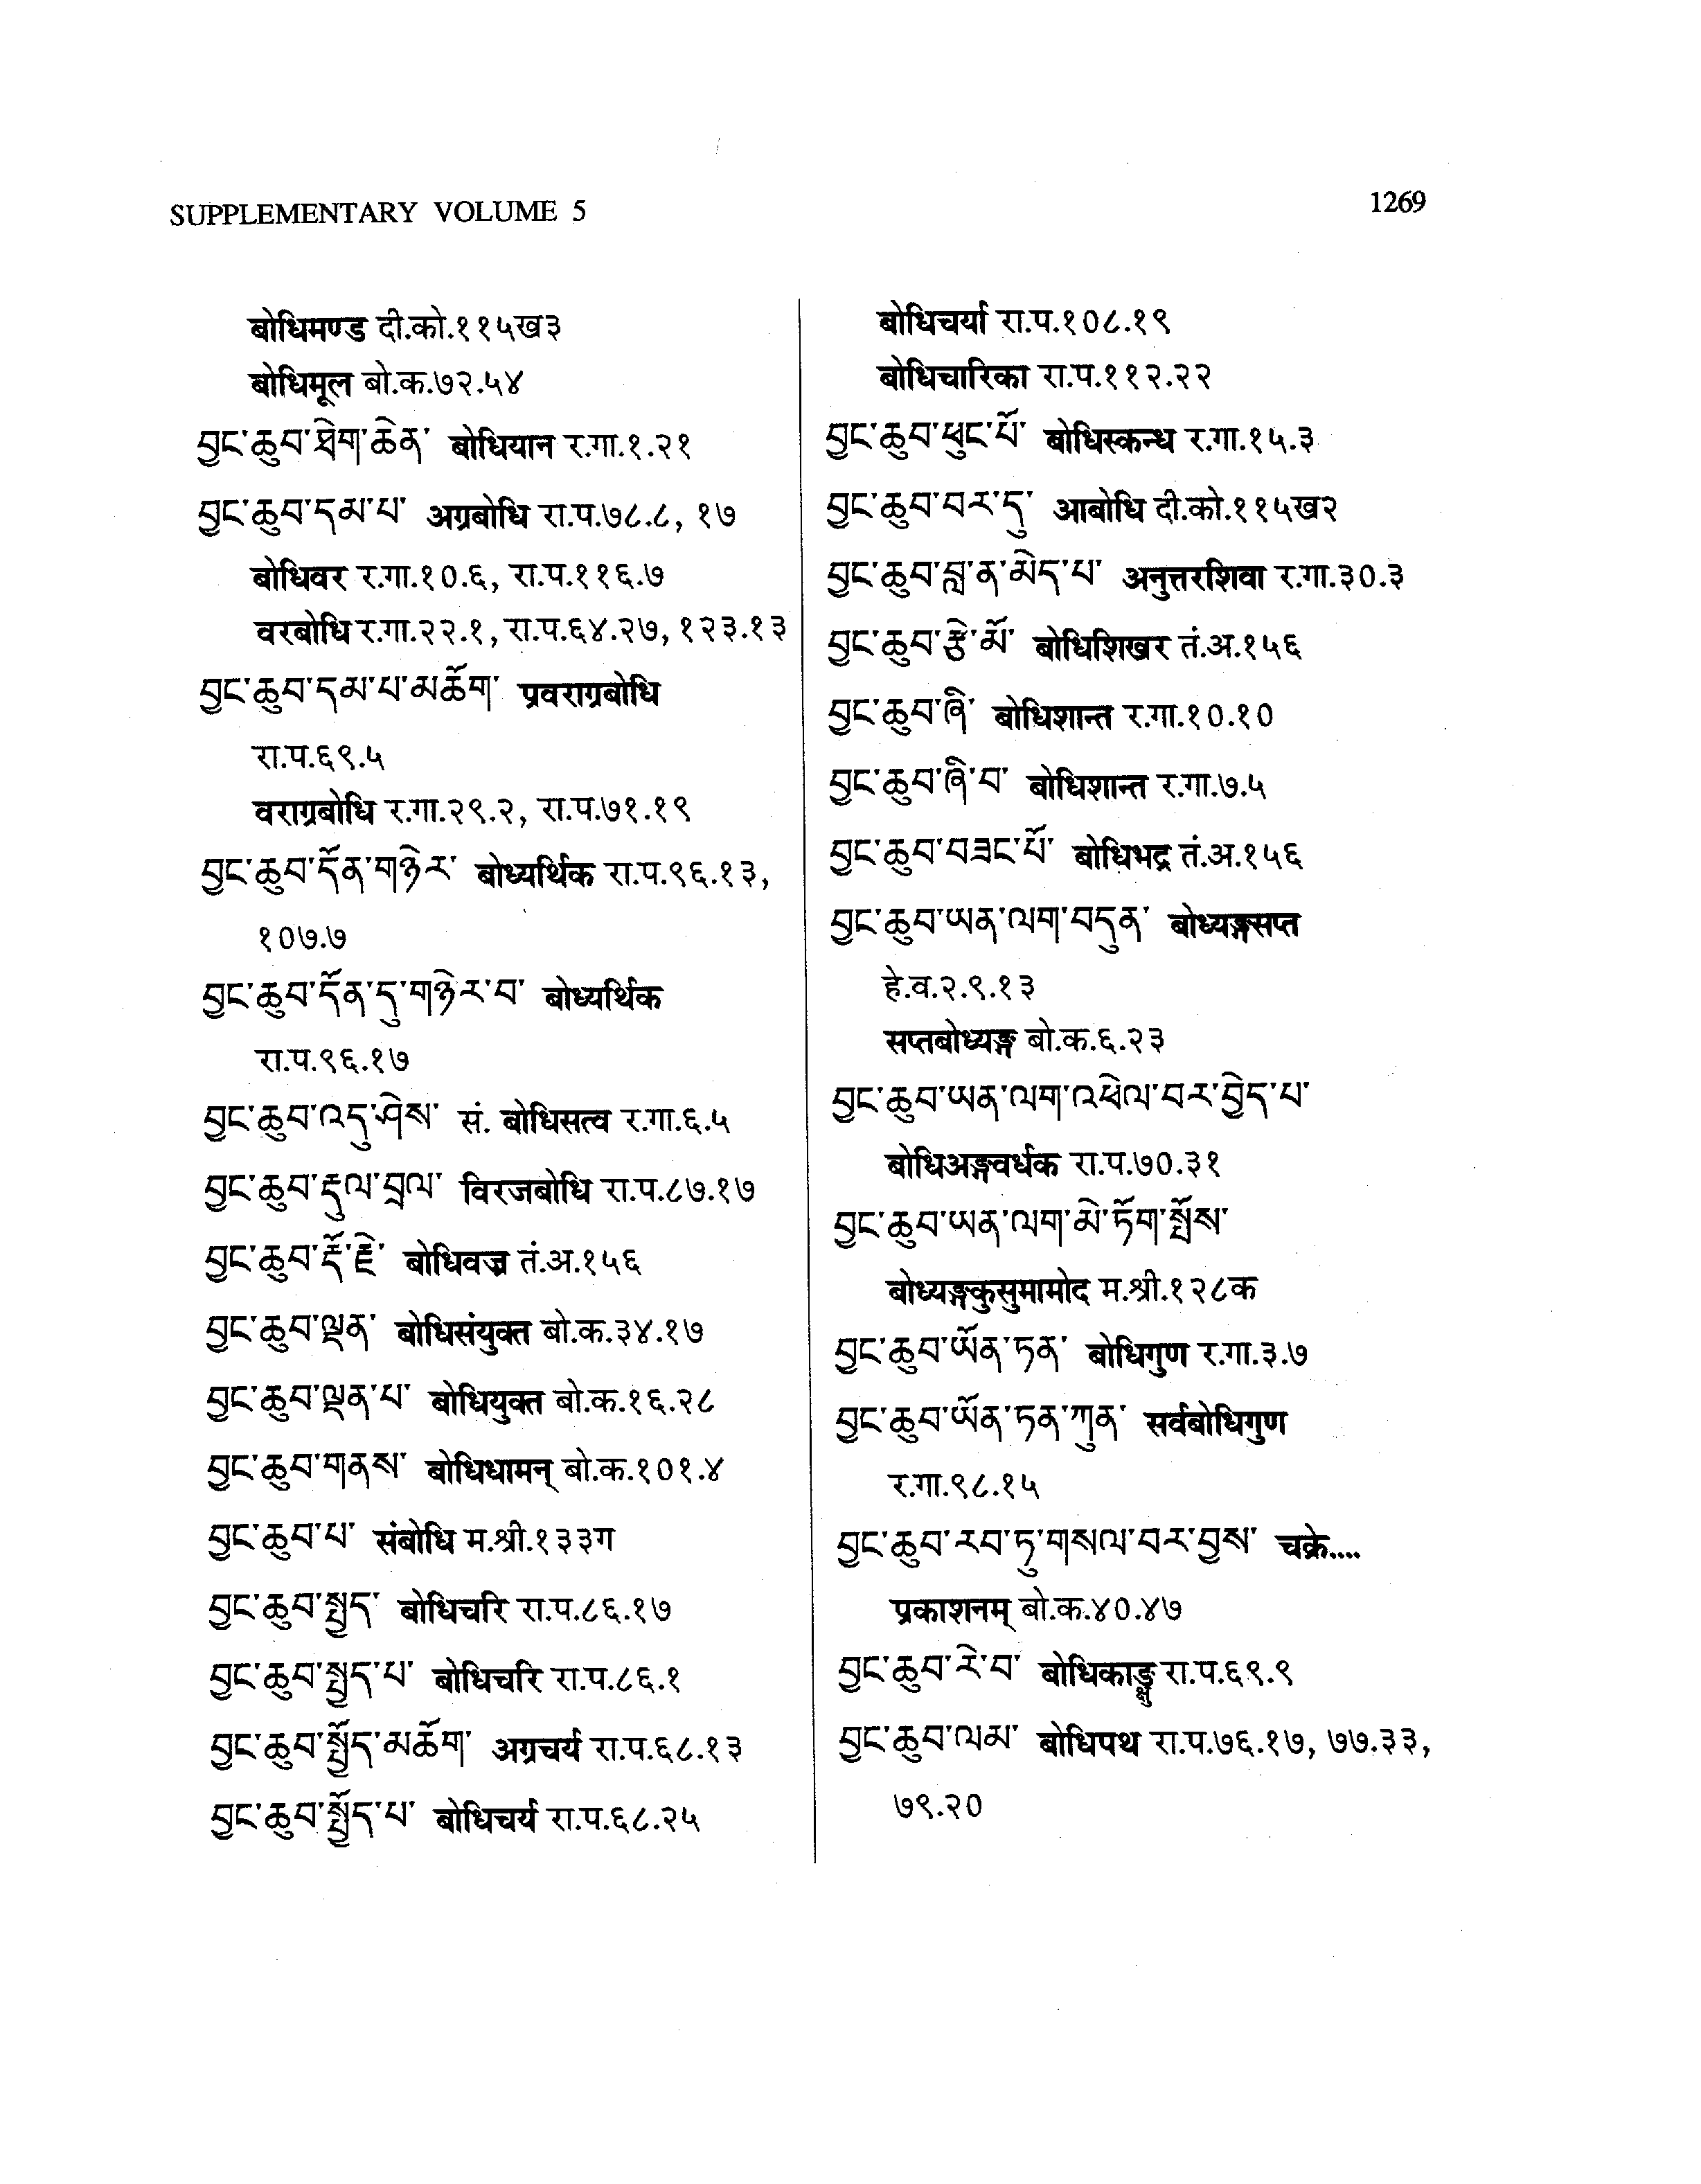 SUPPLEMENTARY VOLUME 5
1269
बोधिमण्ड दी.को.११५ख३
बोधिमूल बो.क.७२.५४
བྱང་ཆུབ་ཐེག་ཆེན་ बोधियान र.गा.१.२१
བྱང་ཆུབ་དམ་པ་ अग्रबोधि रा.प.७८.८, १७
बोधिवर र.गा.१०.६, रा.प.११६.७
वरबोधि र.गा.२२.१, रा.प.६४.२७, १२३.१३
བྱང་ཆུབ་དམ་པ་མཆོག་ प्रवराग्रबोधि
रा.प.६९.५
वराग्रबोधि र.गा.२९.२, रा.प.७१.१९
བྱང་ཆུབ་དོན་གཉེར་ बोध्यर्थिक रा.प.९६.१३,
१०७.७
བྱང་ཆུབ་དོན་དུ་གཉེར་བ་ बोध्यर्थिक
रा.प.९६.१७
བྱང་ཆུབ་འདུ་ཤེས་ सं. बोधिसत्व र.गा.६.५
བྱང་ཆུབ་རྡུལ་བྲལ་ विरजबोधि रा.प.८७.१७
བྱང་ཆུབ་རྡོ་རྗེ་ बोधिवज्र तं.अ.१५६
བྱང་ཆུབ་ལྡན་ बोधिसंयुक्त बो.क.३४.१७
བྱང་ཆུབ་ལྡན་པ་ बोधियुक्त बो.क.१६.२८
བྱང་ཆུབ་གནས་ बोधिधामन् बो.क.१०१.४
བྱང་ཆུབ་པ་ संबोधि म.श्री.१३३ग
བྱང་ཆུབ་སྤྱད་ बोधिचरि रा.प.८६.१७
བྱང་ཆུབ་སྤྱད་པ་ बोधिचरि रा.प.८६.१
བྱང་ཆུབ་སྤྱོད་མཆོག་ अग्रचर्य रा.प.६८.१३
བྱང་ཆུབ་སྤྱོད་པ་ बोधिचर्य रा.प.६८.२५
बोधिचर्या रा.प.१०८.१९
बोधिचारिका रा.प.११२.२२
བྱང་ཆུབ་ཕུང་པོ་ बोधिस्कन्ध र.गा.१५.३
བྱང་ཆུབ་བར་དུ་ आबोधि दी.को.११५ख२
བྱང་ཆུབ་བླ་ན་མེད་པ་ अनुत्तरशिवा र.गा.३०.३
བྱང་ཆུབ་རྩེ་མོ་ बोधिशिखर तं.अ.१५६
བྱང་ཆུབ་ཞི་ बोधिशान्त र.गा.१०.१०
བྱང་ཆུབ་ཞི་བ་ बोधिशान्त र.गा.७.५
བྱང་ཆུབ་བཟང་པོ་ बोधिभद्र तं.अ.१५६
བྱང་ཆུབ་ཡན་ལག་བདུན་ बोध्यङ्गसप्त
हे.व.२.९.१३
सप्तबोध्यङ्ग बो.क.६.२३
བྱང་ཆུབ་ཡན་ལག་འཕེལ་བར་བྱེད་པ་
बोधिअङ्गवर्धक रा.प.७०.३१
བྱང་ཆུབ་ཡན་ལག་མེ་ཏོག་སྤོས་
बोध्यङ्गकुसुमामोद म.श्री.१२८क
བྱང་ཆུབ་ཡོན་ཏན་ बोधिगुण र.गा.३.७
བྱང་ཆུབ་ཡོན་ཏན་ཀུན་ सर्वबोधिगुण
र.गा.९८.१५
བྱང་ཆུབ་རབ་ཏུ་གསལ་བར་བྱས་ चक्रे....
प्रकाशनम् बो.क.४०.४७
བྱང་ཆུབ་རེ་བ་ बोधिकाङ्क्षु रा.प.६९.९
བྱང་ཆུབ་ལམ་ बोधिपथ रा.प.७६.१७, ७७.३३,
७९.२०